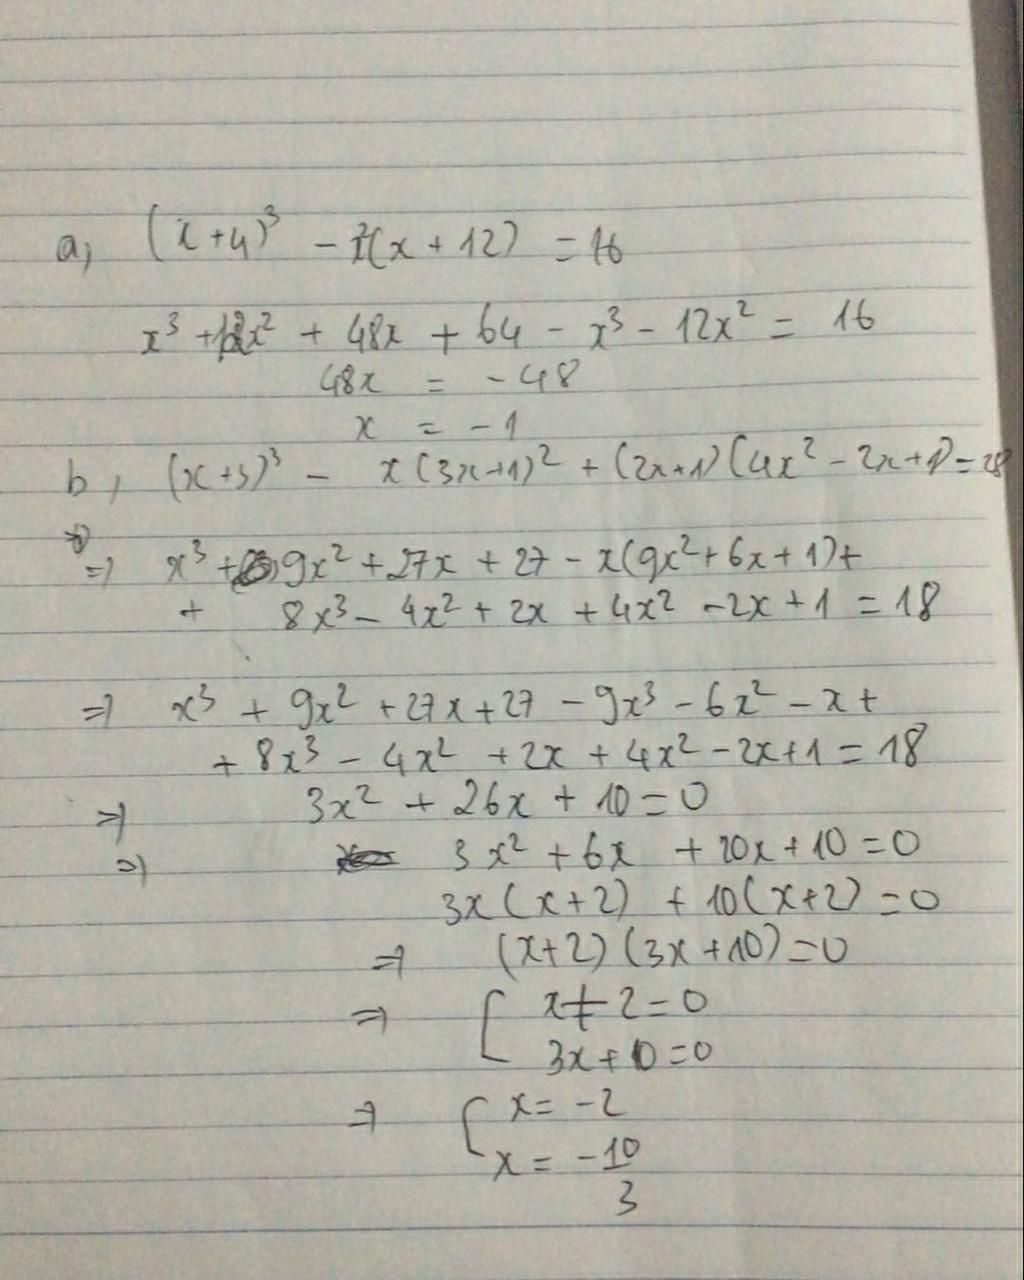 a, (x+4)³ - x²(x + 12) = 16
x³ + 12x² + 48x + 64 - x³ - 12x² = 16
48x = -48
x = -1
b, (x+3)³ - x(3x+1)² + (2x+1)(4x² - 2x+1) = 28
=) x³ + 9x² + 27x + 27 - x(9x² + 6x + 1) +
+ 8x³ - 4x² + 2x + 4x² - 2x + 1 = 18
=) x³ + 9x² + 27x + 27 - 9x³ - 6x² - x +
+ 8x³ - 4x² + 2x + 4x² - 2x + 1 = 18
=) 3x² + 26x + 10 = 0
=) 3x² + 6x + 20x + 10 = 0
3x(x+2) + 10(x+2) = 0
=) (x+2)(3x+10) = 0
=) [ x + 2 = 0
3x + 10 = 0
=) [ x = -2
x = -10/3